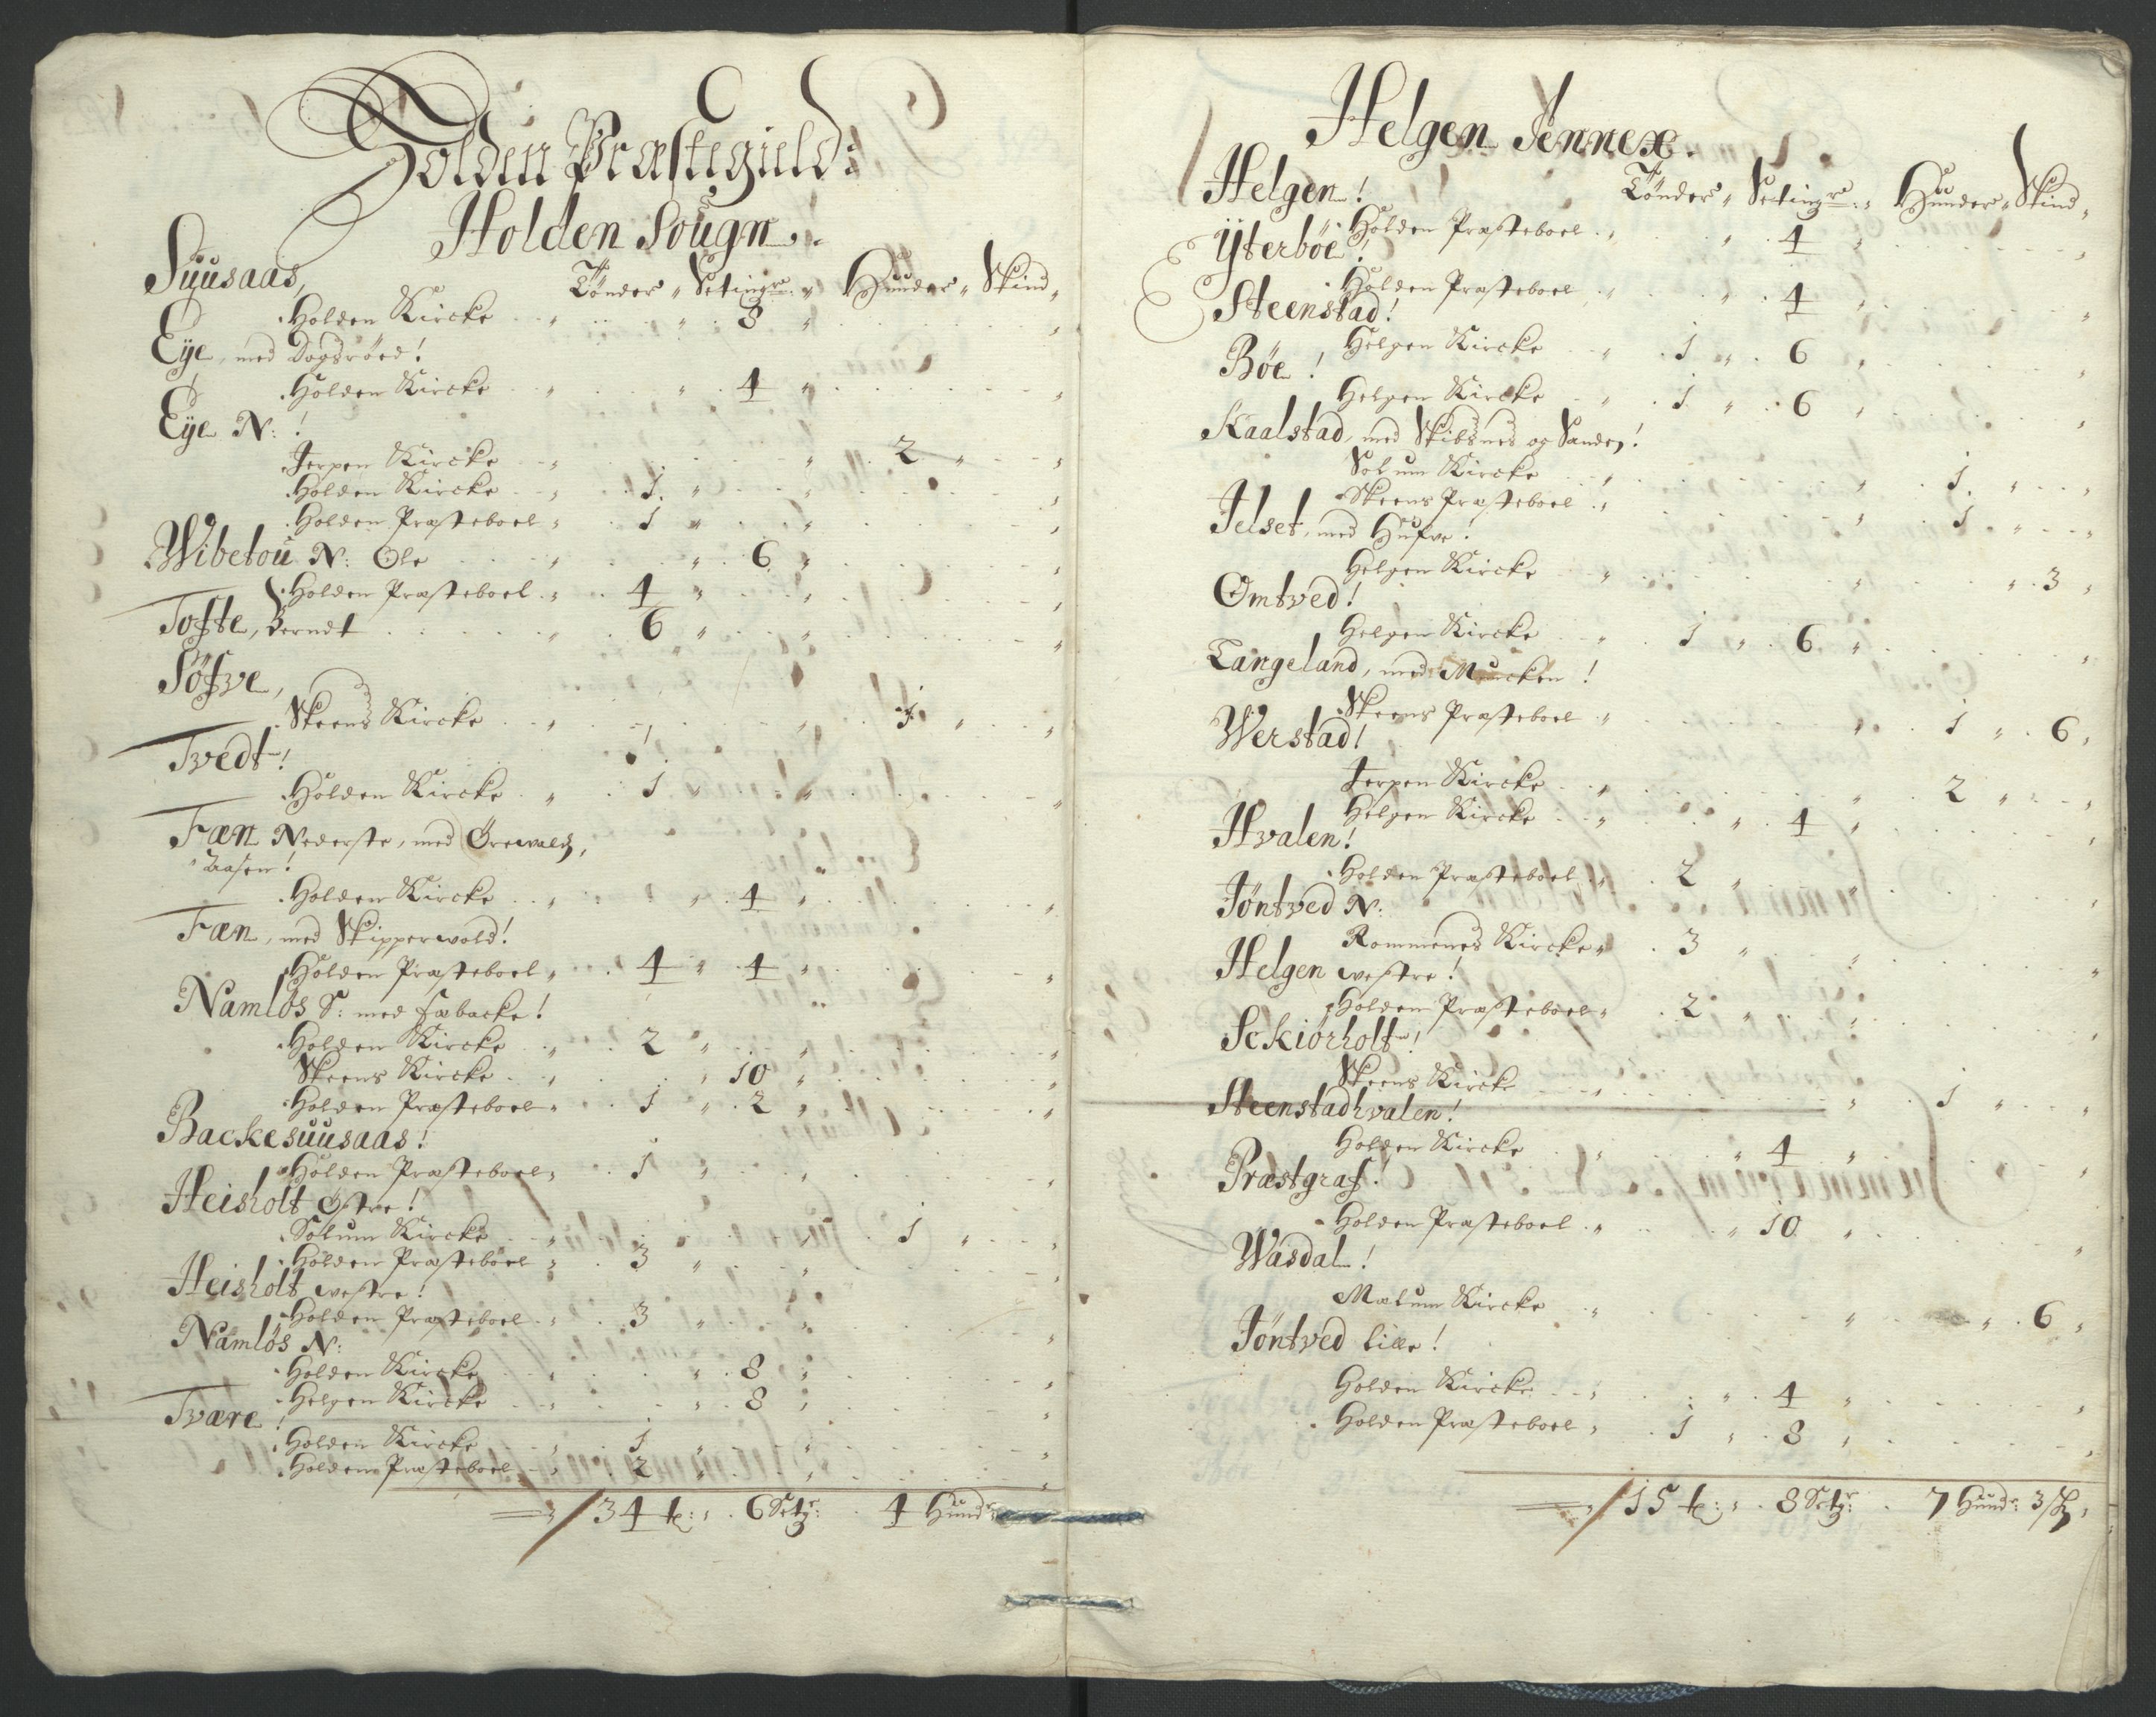 Holden Præstegield:
Holden Sougn.
Suusaas, Tönder „ Setingr: „ Hunder „ Skind „
Holden Kircke „ „ 8 „ „
Eije, med Dogsröed!
Holden Kircke „ „ 4 „ „
Eije N: !
Jerpen Kircke „ „ 2 „ „
Holden Kircke „ 1 „ „ „
Holden Præsteboel „ 1 „ „ „
Wibetou N: Ole „ „ 6 „ „
Holden Præsteboel „ 4 „ „ „
Tofte, Berndt „ 6 „ „ „
Söfve,
Skeens Kircke „ „ 1 „ „
Tvedt!
Holden Kircke „ 1 „ „ „
Fæn Nederste, med Örewald,
Aasen!
Holden Kircke „ „ 4 „ „
Fæn, med Skipperwold!
Holden Præsteboel „ 4 „ 4 „ „
Namlös S: med Fæbacke!
Holden Kircke „ 2 „ „ „
Skeens Kircke „ „ 10 „ „
Holden Præsteboel „ 1 „ 2 „ „
Backesuusaas!
Holden Præsteboel „ 1 „ „
Heisholt Östre!
Solum Kircke „ „ 1 „ „
Holden Præsteboel „ 3 „ „ „
Heisholt westre!
Holden Præsteboel „ 3 „ „ „
Namlös N:
Holden Kircke „ „ 8 „ „
Helgen Kircke „ „ 8 „ „
Tvære!
Holden Kircke „ 1 „ „ „
Holden Præsteboel „ 2 „ „ „
34 t: „ 6 Setgr: 4 Hundr
Helgen Annex.
Helgen! Tönder „ Setingr: „ Hunder „ Skind „
Holden Præsteboel „ „ 4 „ „
Ÿterböe!
Holden Præsteboel „ „ 4 „ „
Steenstad!
Helgen Kircke „ 1 „ 6 „ „
Böe!
Helgen Kircke „ 1 „ 6 „ „
Kaalstad, med Skibsnes og Sanden!
Solum Kircke „ „ 1 „ „
Skeens Præsteboel „ „ 1 „ „
Jelset, med Hufve!
Helgen Kircke „ „ „ 3 „
Omtved!
Helgen Kircke „ 1 „ 6 „ „
Tangeland, med Muncken!
Skeens Præsteboel „ „ 1 „ 6 „
Werstad!
Jerpen Kircke „ „ 2 „ „
Helgen Kircke „ „ 4 „ „
Hvalen!
Holden Præsteboel „ 2 „ „ „
Töntved N:
Rommenes Kircke „ 3 „ „ „
Helgen westre!
Holden Præsteboel „ 2 „ „ „
Sckiörholt!
Skeens Kircke „ „ 1 „ „
Steenstadhvalen!
Holden Kircke „ „ 4 „ „
Præstgraf!
Holden Præsteboel „ „ 10 „ „
Wasdal!
Mælum Kircke „ „ „ 6 „
Töntved lille!
Holden Kircke „ „ 4 „ „
Holden Præsteboel „ 1 „ 8 „ „
15 t: „ 8 Setgr: 7 Hundr: 3 Sk